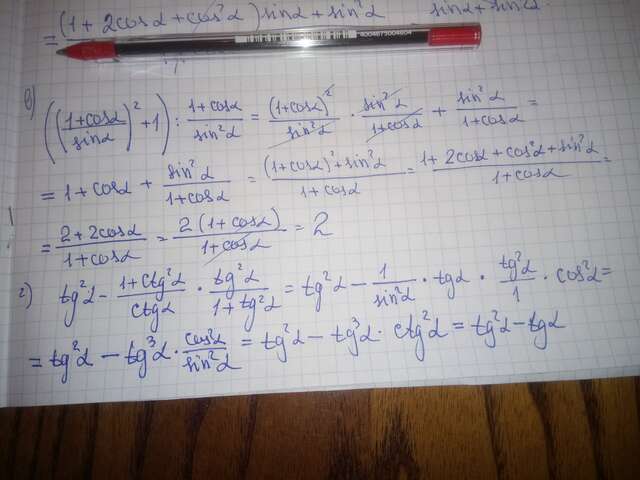 = (1 + 2cosα + cos²α) sinα + sin²α sinα + sin²α
в)
((1+cosα / sinα)² + 1) : 1+cosα / sin²α = (1+cosα)² / sin²α · sin²α / 1+cosα + sin²α / 1+cosα =
= 1 + cosα + sin²α / 1+cosα = (1+cosα)² + sin²α / 1+cosα = 1 + 2cosα + cos²α + sin²α / 1+cosα =
= 2 + 2cosα / 1+cosα = 2(1+cosα) / 1+cosα = 2
г)
tg²α - 1+ctg²α / ctgα · tg²α / 1+tg²α = tg²α - 1 / sin²α · tgα · tg²α / 1 · cos²α =
= tg²α - tg³α · cos²α / sin²α = tg²α - tg³α · ctg²α = tg²α - tgα